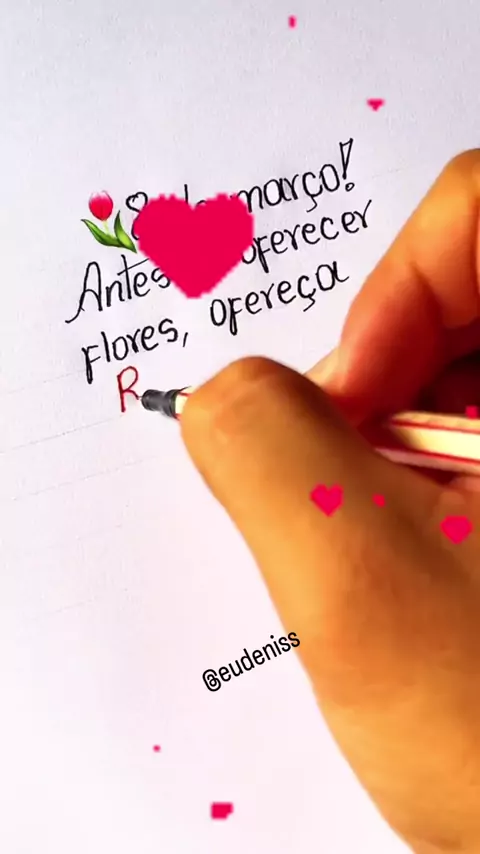 8 março!
Antes oferecer
flores, ofereça
R
@eudeniss